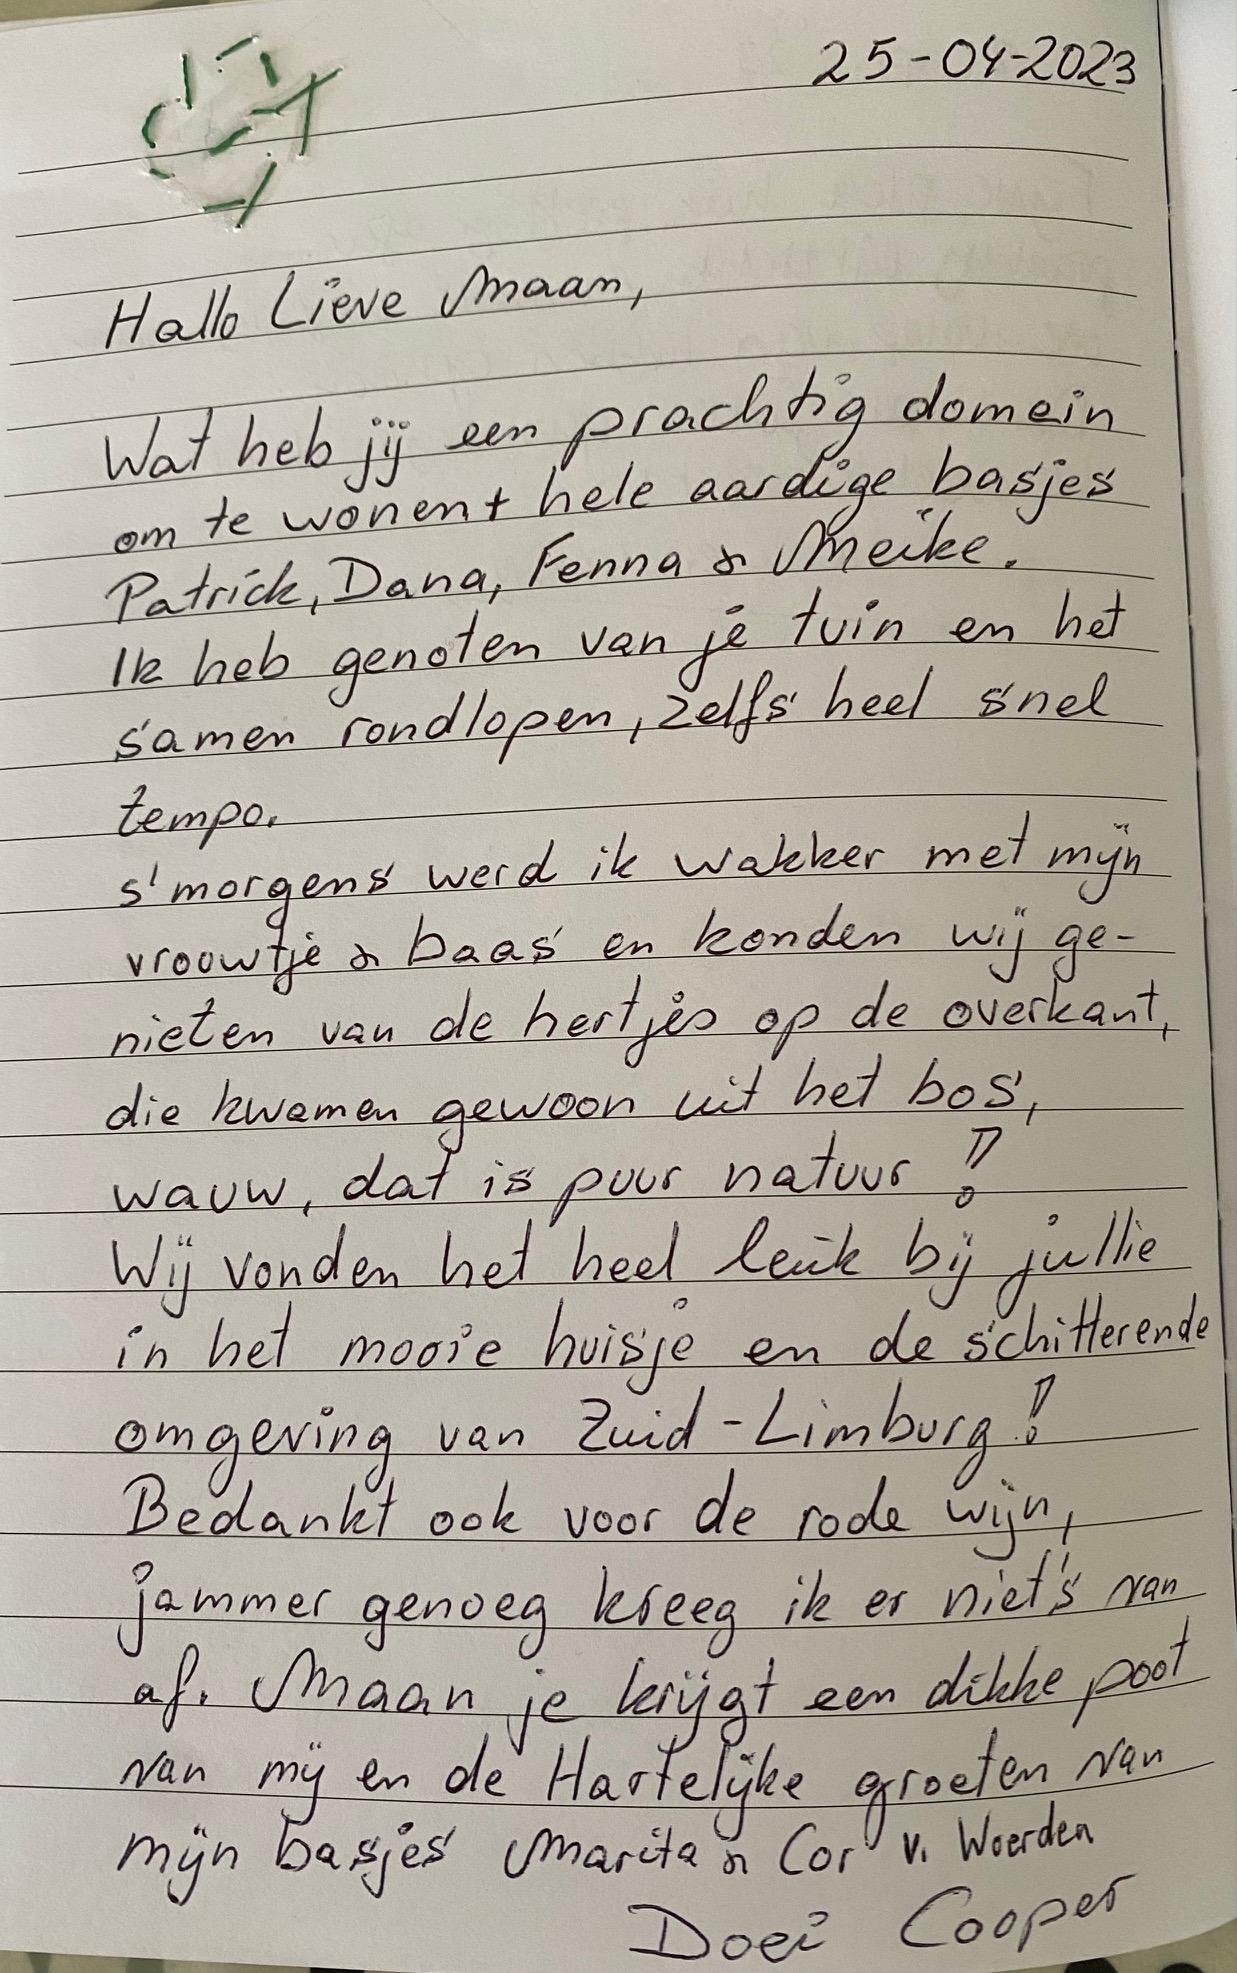 25-04-2023
Hallo Lieve Maan,
Wat heb jij een prachtig domein
om te wonen + hele aardige basjes
Patrick, Dana, Fenna & Meike.
Ik heb genoten van je tuin en het
samen rondlopen, zelfs heel snel
tempo.
s'morgens werd ik wakker met mijn
vroowtje & baas en konden wij ge-
nieten van de hertjes op de overkant,
die kwamen gewoon uit het bos,
wauw, dat is puur natuur !
Wij vonden het heel leuk bij jullie
in het mooie huisje en de schitterende
omgeving van Zuid-Limburg !
Bedankt ook voor de rode wijn,
jammer genoeg kreeg ik er niets van
af. Maan je krijgt een dikke poot
van mij en de Hartelijke groeten van
mijn basjes Marita & Cor v. Woerden
Doei Cooper